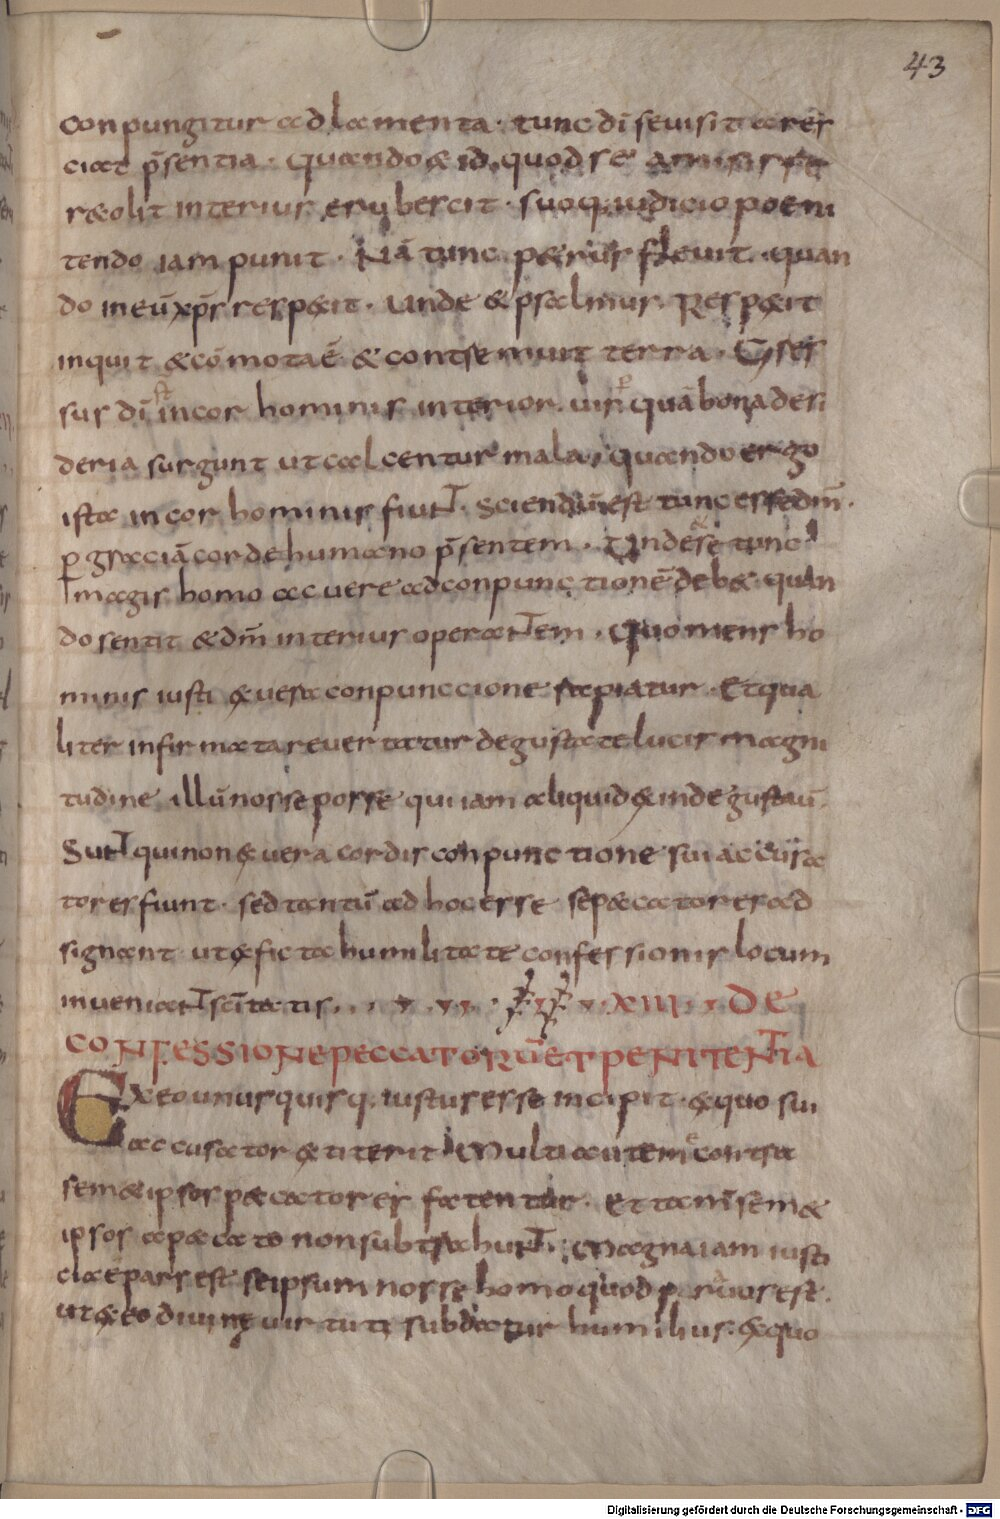 43
conpungitur ad lamenta · tunc dī se uisitares
ciat p̄sentia · Quando & id quod se amisis se
r&olit interius erubescit · suoq; iudicio poeni
tendo iam punit · Nā tunc p&rus fleuit · quan
do in eū xp̄s resp&it · Unde & psalmus · Resp&it
inquit & cōmota ē & contremuit terra · Gres
sus dī in cor hominis interior uis quā bona desi
deria surgunt ut calcentur mala, quando ergo
ista in cor hominis fiunt · Sciendū est tunc esse dm̄ ·
p̱ graciā corde humano p̄sentem · Unde se tunc
magis homo ac uere ad conpunctionē deb& · quan
do sentit & dm̄ interius operantem · Quo mens ho
minis iusti ex uera conpunccione rapiatur · Et qua
liter infirmata reuertatur degustate lucis magni
tudine illū nosse posse qui iam aliquid exinde gustaū ·
Sunt qui non ex uera cordis conpunctione sui accusa
tores fiunt · sed tantū ad hoc esse se p&catores ad
signant ut ex ficta humilitate confessionis locum
inueniant sc̄itatis · XIII · DE
CONFESSIONE PECCATORŪ ET PENITENTIA
Ex eo unusquisq; iustus esse incipit · ex quo sui
accusator extiterit Multi autem e contra
sem&ipsos p&catores fatentur · Et tam̄ sem&
ipsos a p&cato non subtrahunt; Magna iam iusti
ciae pars est se ipsum nosse homo quod prauus est ·
ut ex eo diuine uirtuti subdatur humilius · ex quo
Digitalisierung gefördert durch die Deutsche Forschungsgemeinschaft - DFG